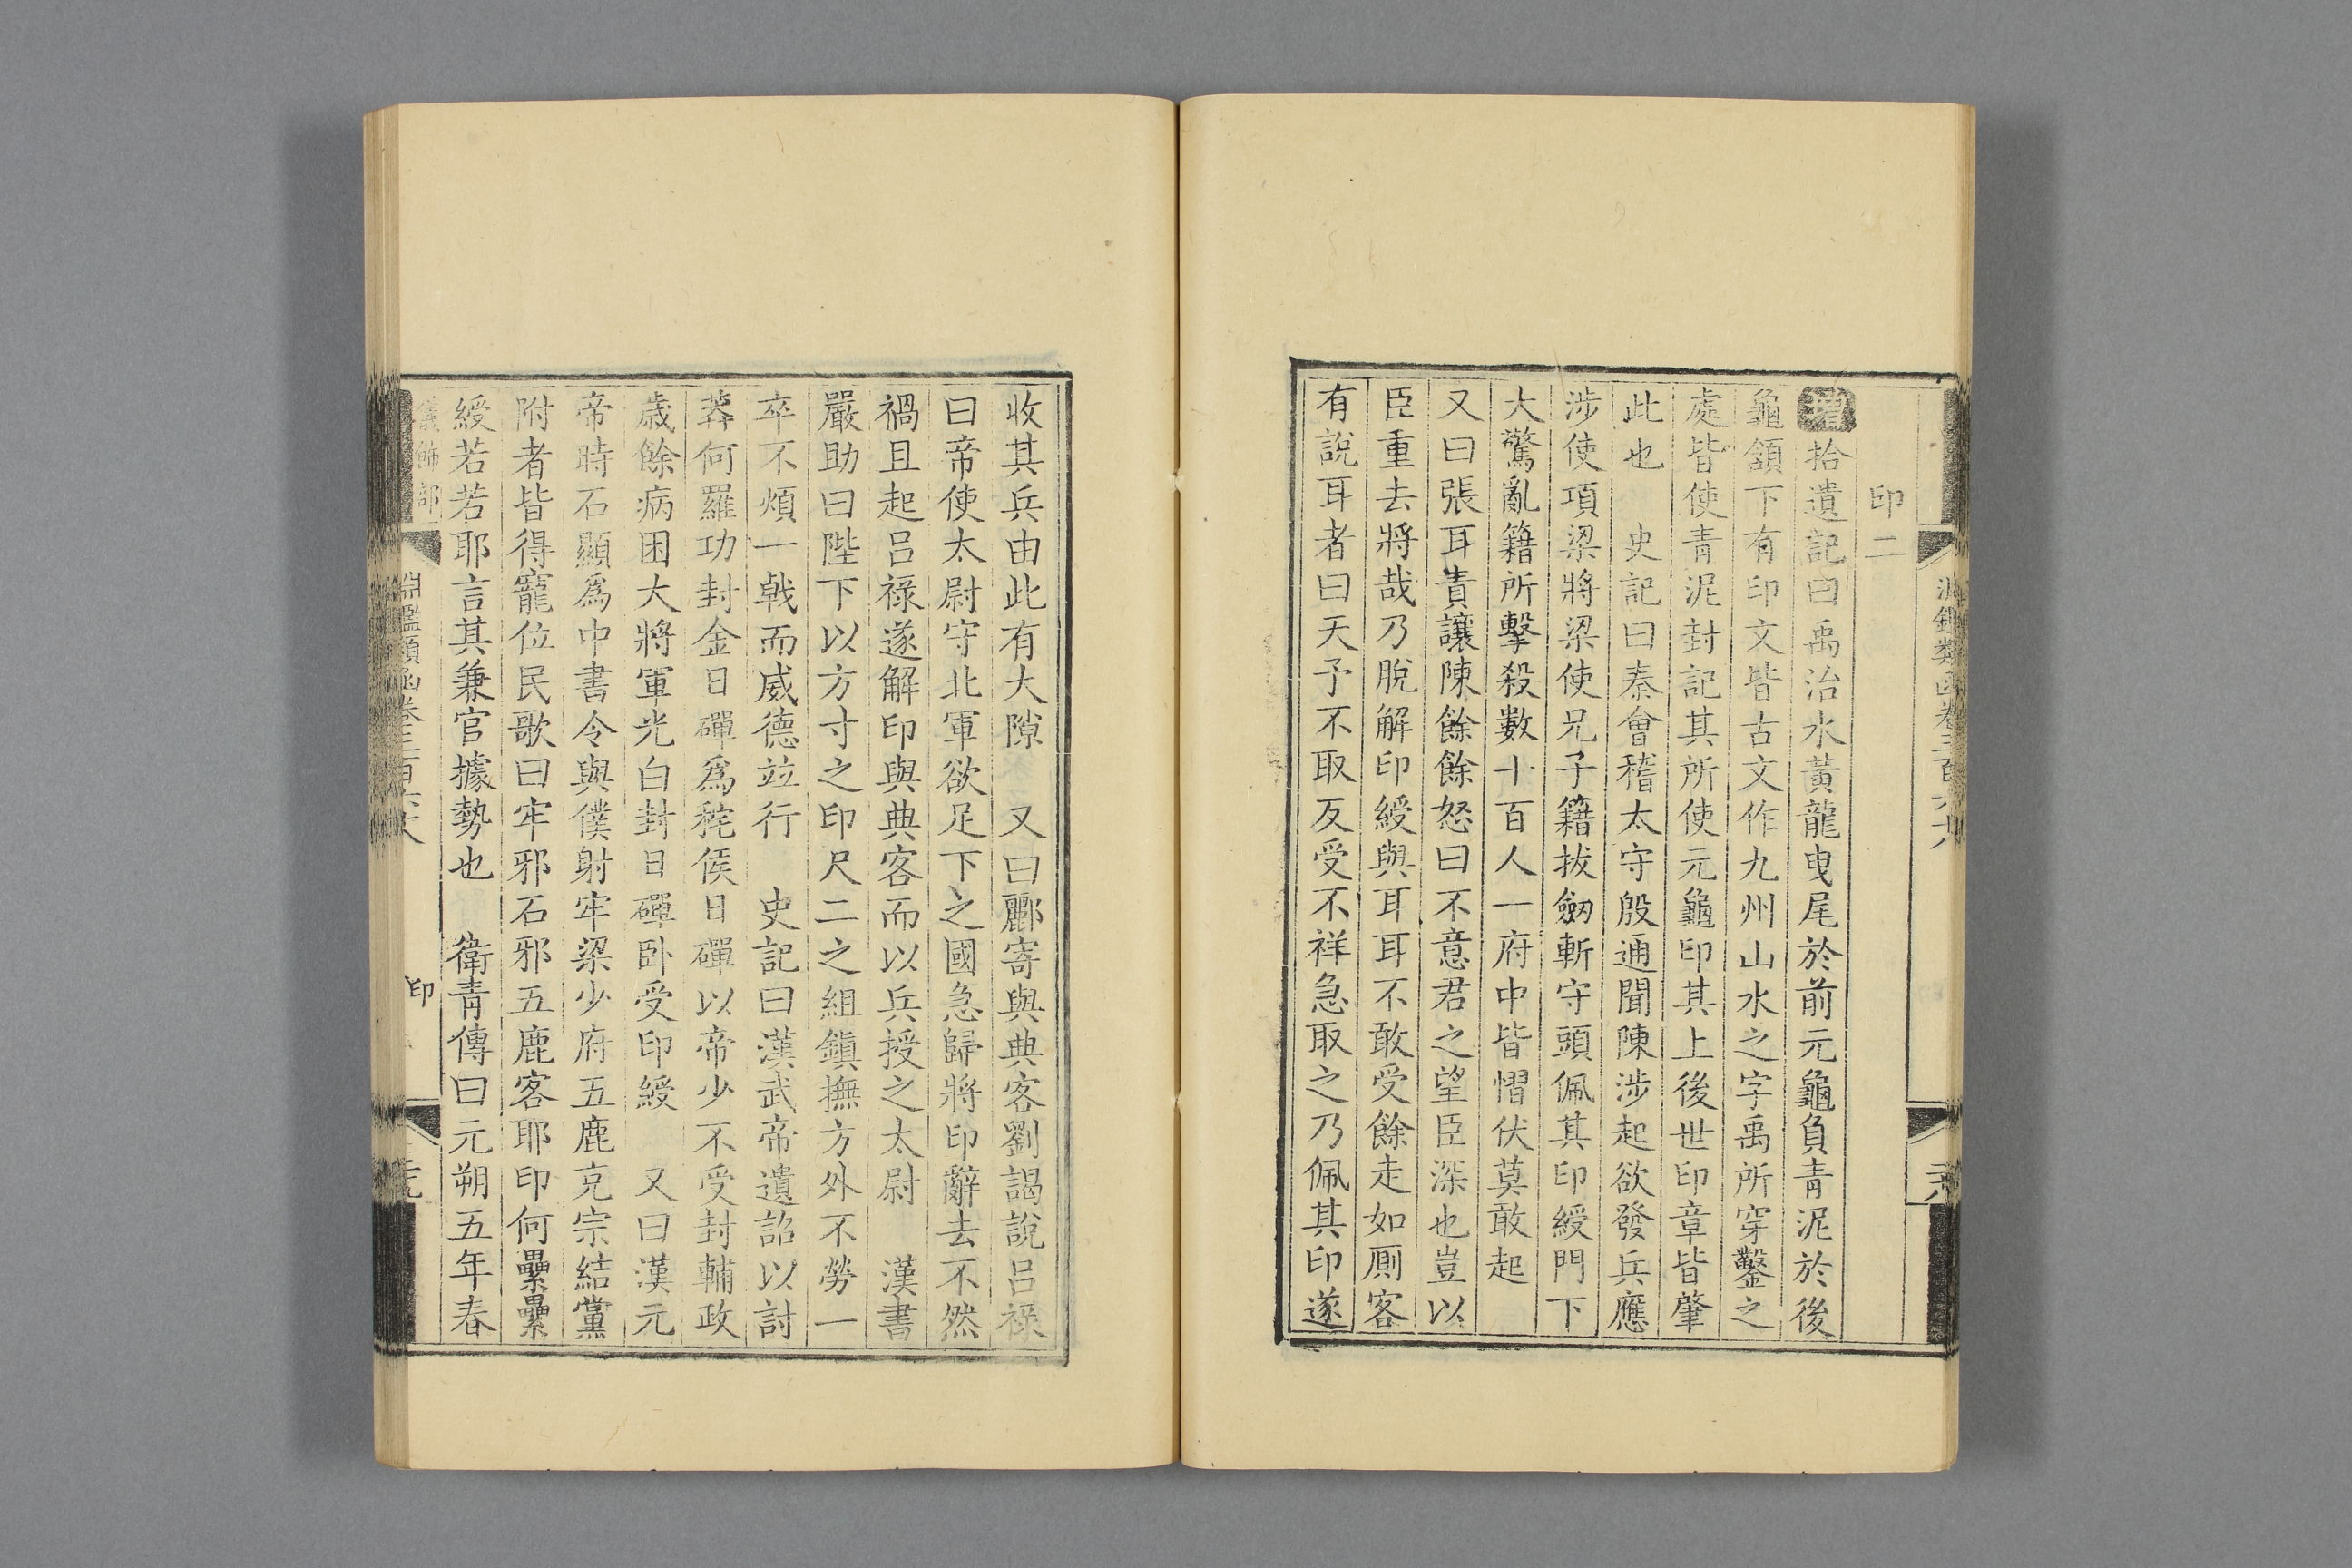 印二
增拾遺記曰禹治水黃龍曳尾於前元龜負青泥於後
龜頷下有印文皆古文作九州山水之字禹所穿鑿之
處皆使青泥封記其所使元龜印其上後世印章皆肇
此也　史記曰秦會稽太守殷通聞陳涉起欲發兵應
涉使項梁將梁使兄子籍拔劒斬守頭佩其印綬門下
大驚亂籍所擊殺數十百人一府中皆慴伏莫敢起
又曰張耳責讓陳餘餘怒曰不意君之望臣深也豈以
臣重去將哉乃脫解印綬與耳耳不敢受餘走如厠客
有說耳者曰天予不取反受不祥急取之乃佩其印遂
收其兵由此有大隙　又曰酈寄與典客劉謁說呂祿
曰帝使太尉守北軍欲足下之國急歸將印辭去不然
禍且起呂祿遂解印與典客而以兵授之太尉　漢書
嚴助曰陛下以方寸之印尺二之組鎮撫方外不勞一
卒不煩一戟而威德竝行　史記曰漢武帝遺詔以討
莽何羅功封金日磾爲秺侯日磾以帝少不受封輔政
歲餘病困大將軍光白封日磾卧受印綬　又曰漢元
帝時石顯爲中書令與僕射牢梁少府五鹿克宗結黨
附者皆得寵位民歌曰牢邪石邪五鹿客耶印何纍纍
綬若若耶言其兼官據勢也　衛青傳曰元朔五年春
儀飾部
淵鑑類函卷三百
印